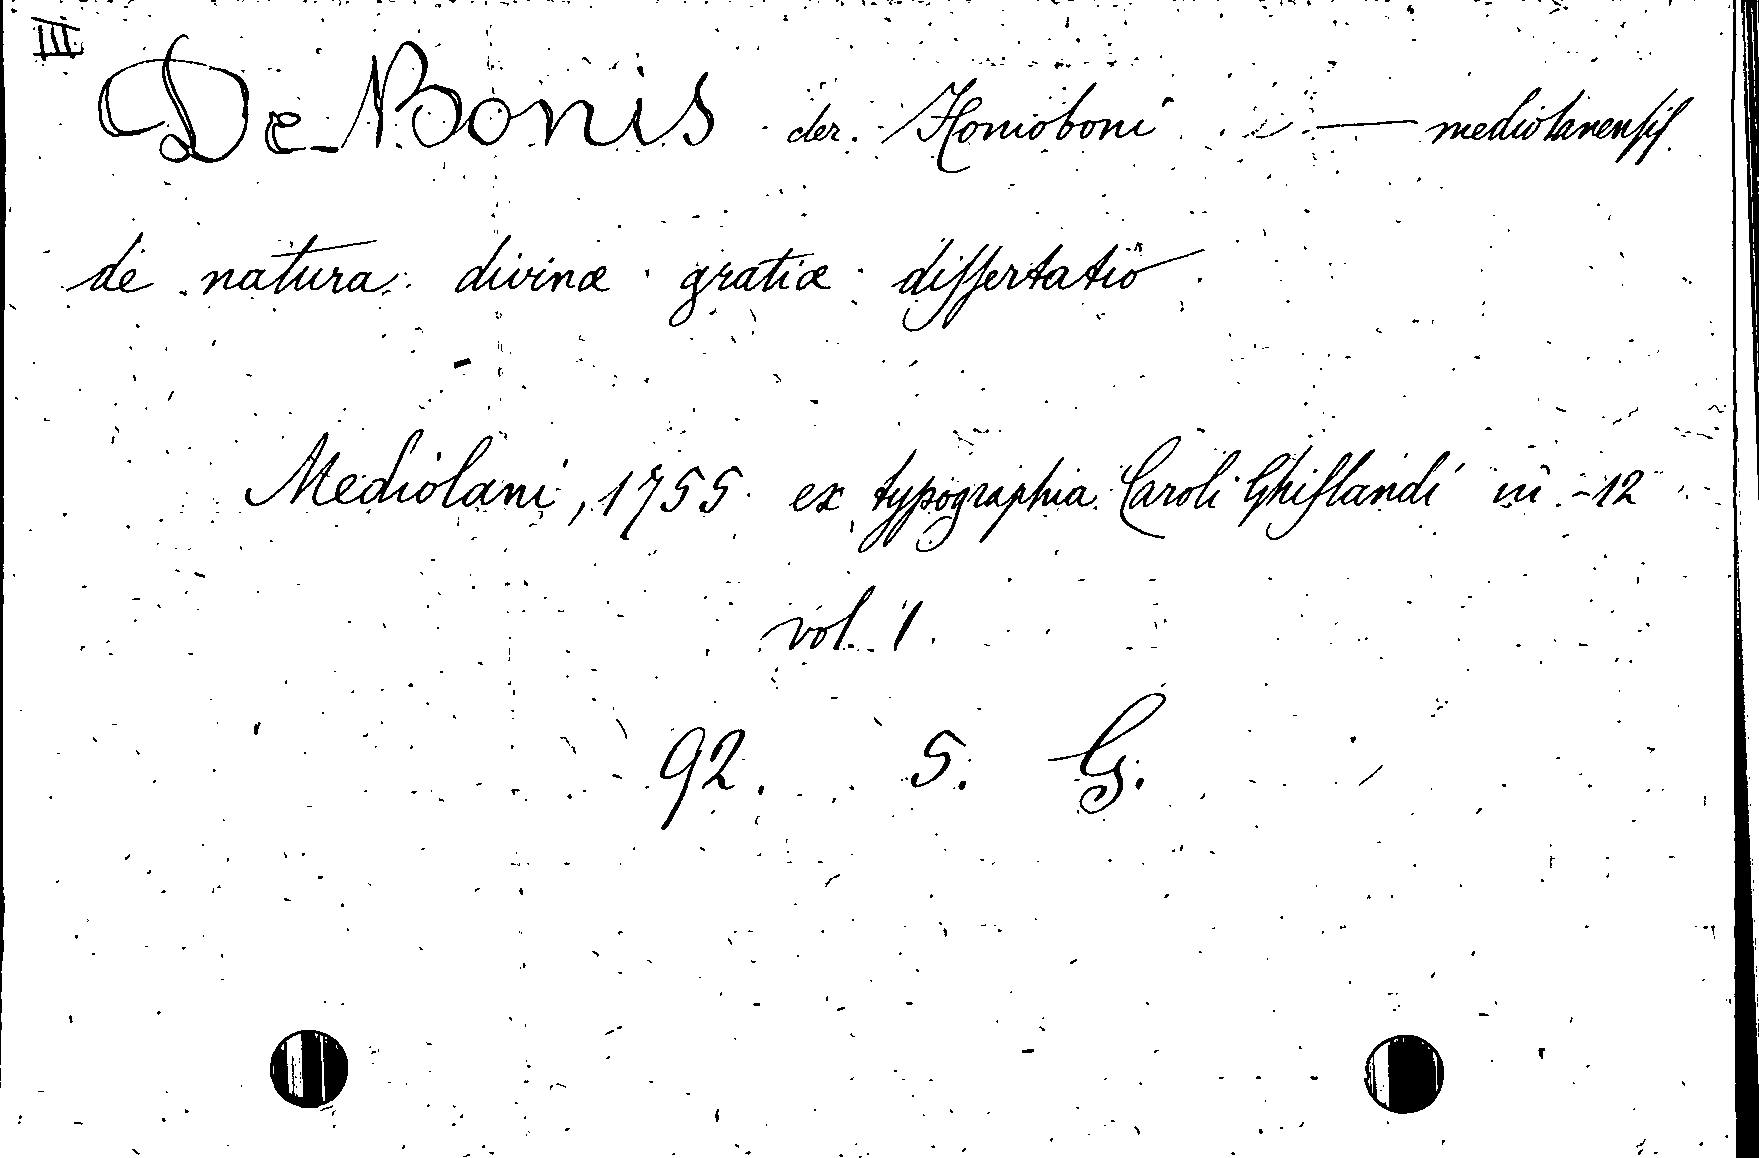 III
De-Bonis der. Homoboni — mediolanensis
de natura divinæ gratiæ dissertatio
Mediolani, 1755 ex typographia Caroli Ghislandi in-12
vol. 1.
92. 5. G.